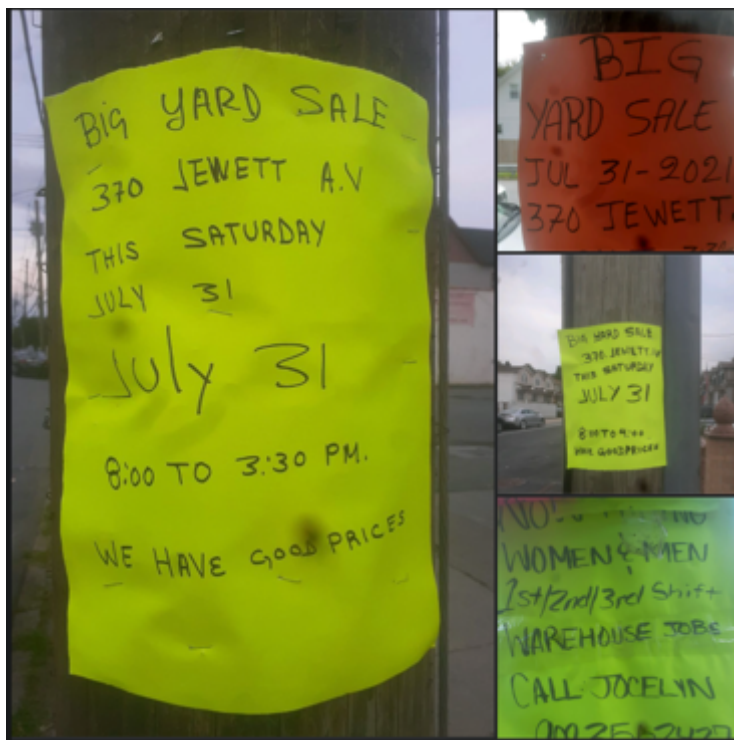 BIG YARD SALE
370 JEWETT A.V
THIS SATURDAY
JULY 31
July 31
8:00 TO 3:30 PM.
WE HAVE GOOD PRICES
BIG
YARD SALE
JUL 31-2021
370 JEWETT
BIG YARD SALE
370 JEWETT AV
THIS SATURDAY
JULY 31
8:00 TO
GOOD PRICES
WOMEN & MEN
1st/2nd/3rd Shift
WAREHOUSE JOBS
CALL JOCELYN